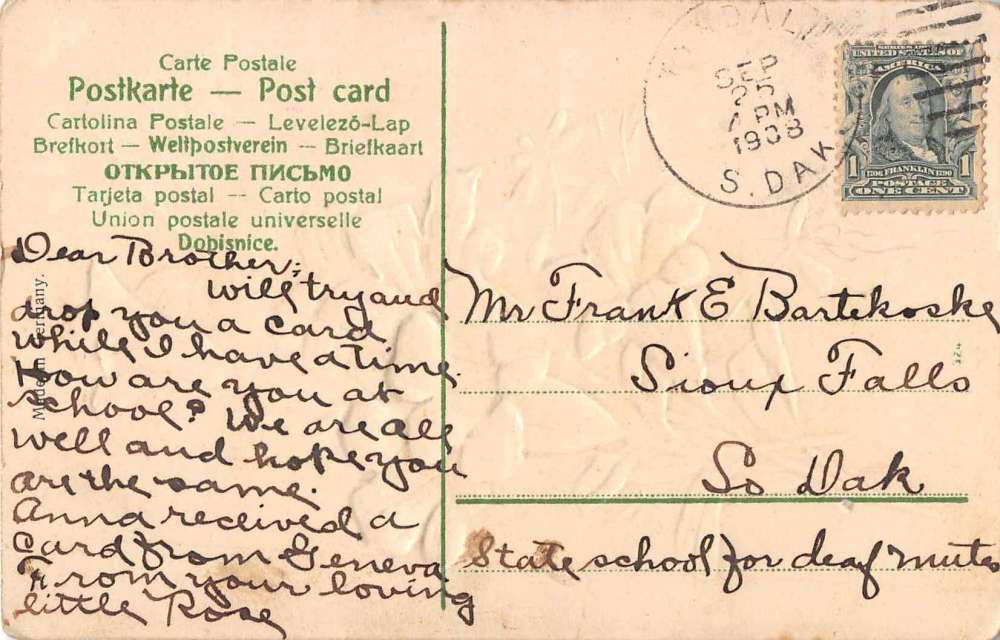 Carte Postale
Postkarte — Post card
Cartolina Postale — Levelező-Lap
Brefkort — Weltpostverein — Briefkaart
ОТКРЫТОЕ ПИСЬМО
Tarjeta postal — Carto postal
Union postale universelle
Dopisnice.
Made in Germany.
Dear Brother;
will try and
drop you a card
while I have a time.
How are you at
school? We are all
well and hope you
are the same.
Anna received a
card from Geneva
From your loving
little Rose
SEP
PM
1908
S. DAK
SERIES 1902
UNITED STATES OF
AMERICA
1706 FRANKLIN 1790
1 POSTAGE 1
ONE CENT
Mr Frank E Bartekoske
Sioux Falls
So Dak
State school for deaf mutes